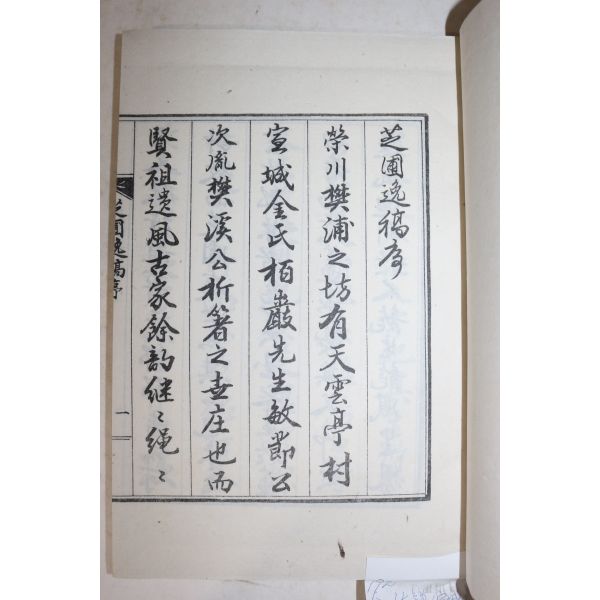 芝圃逸稿序
榮川樊浦之坊有天雲亭村
宣城金氏栢巖先生敏節公
次胤樊溪公析箸之遺庄也而
賢祖遺風古家餘韵継〻繩〻
芝圃逸稿序
一